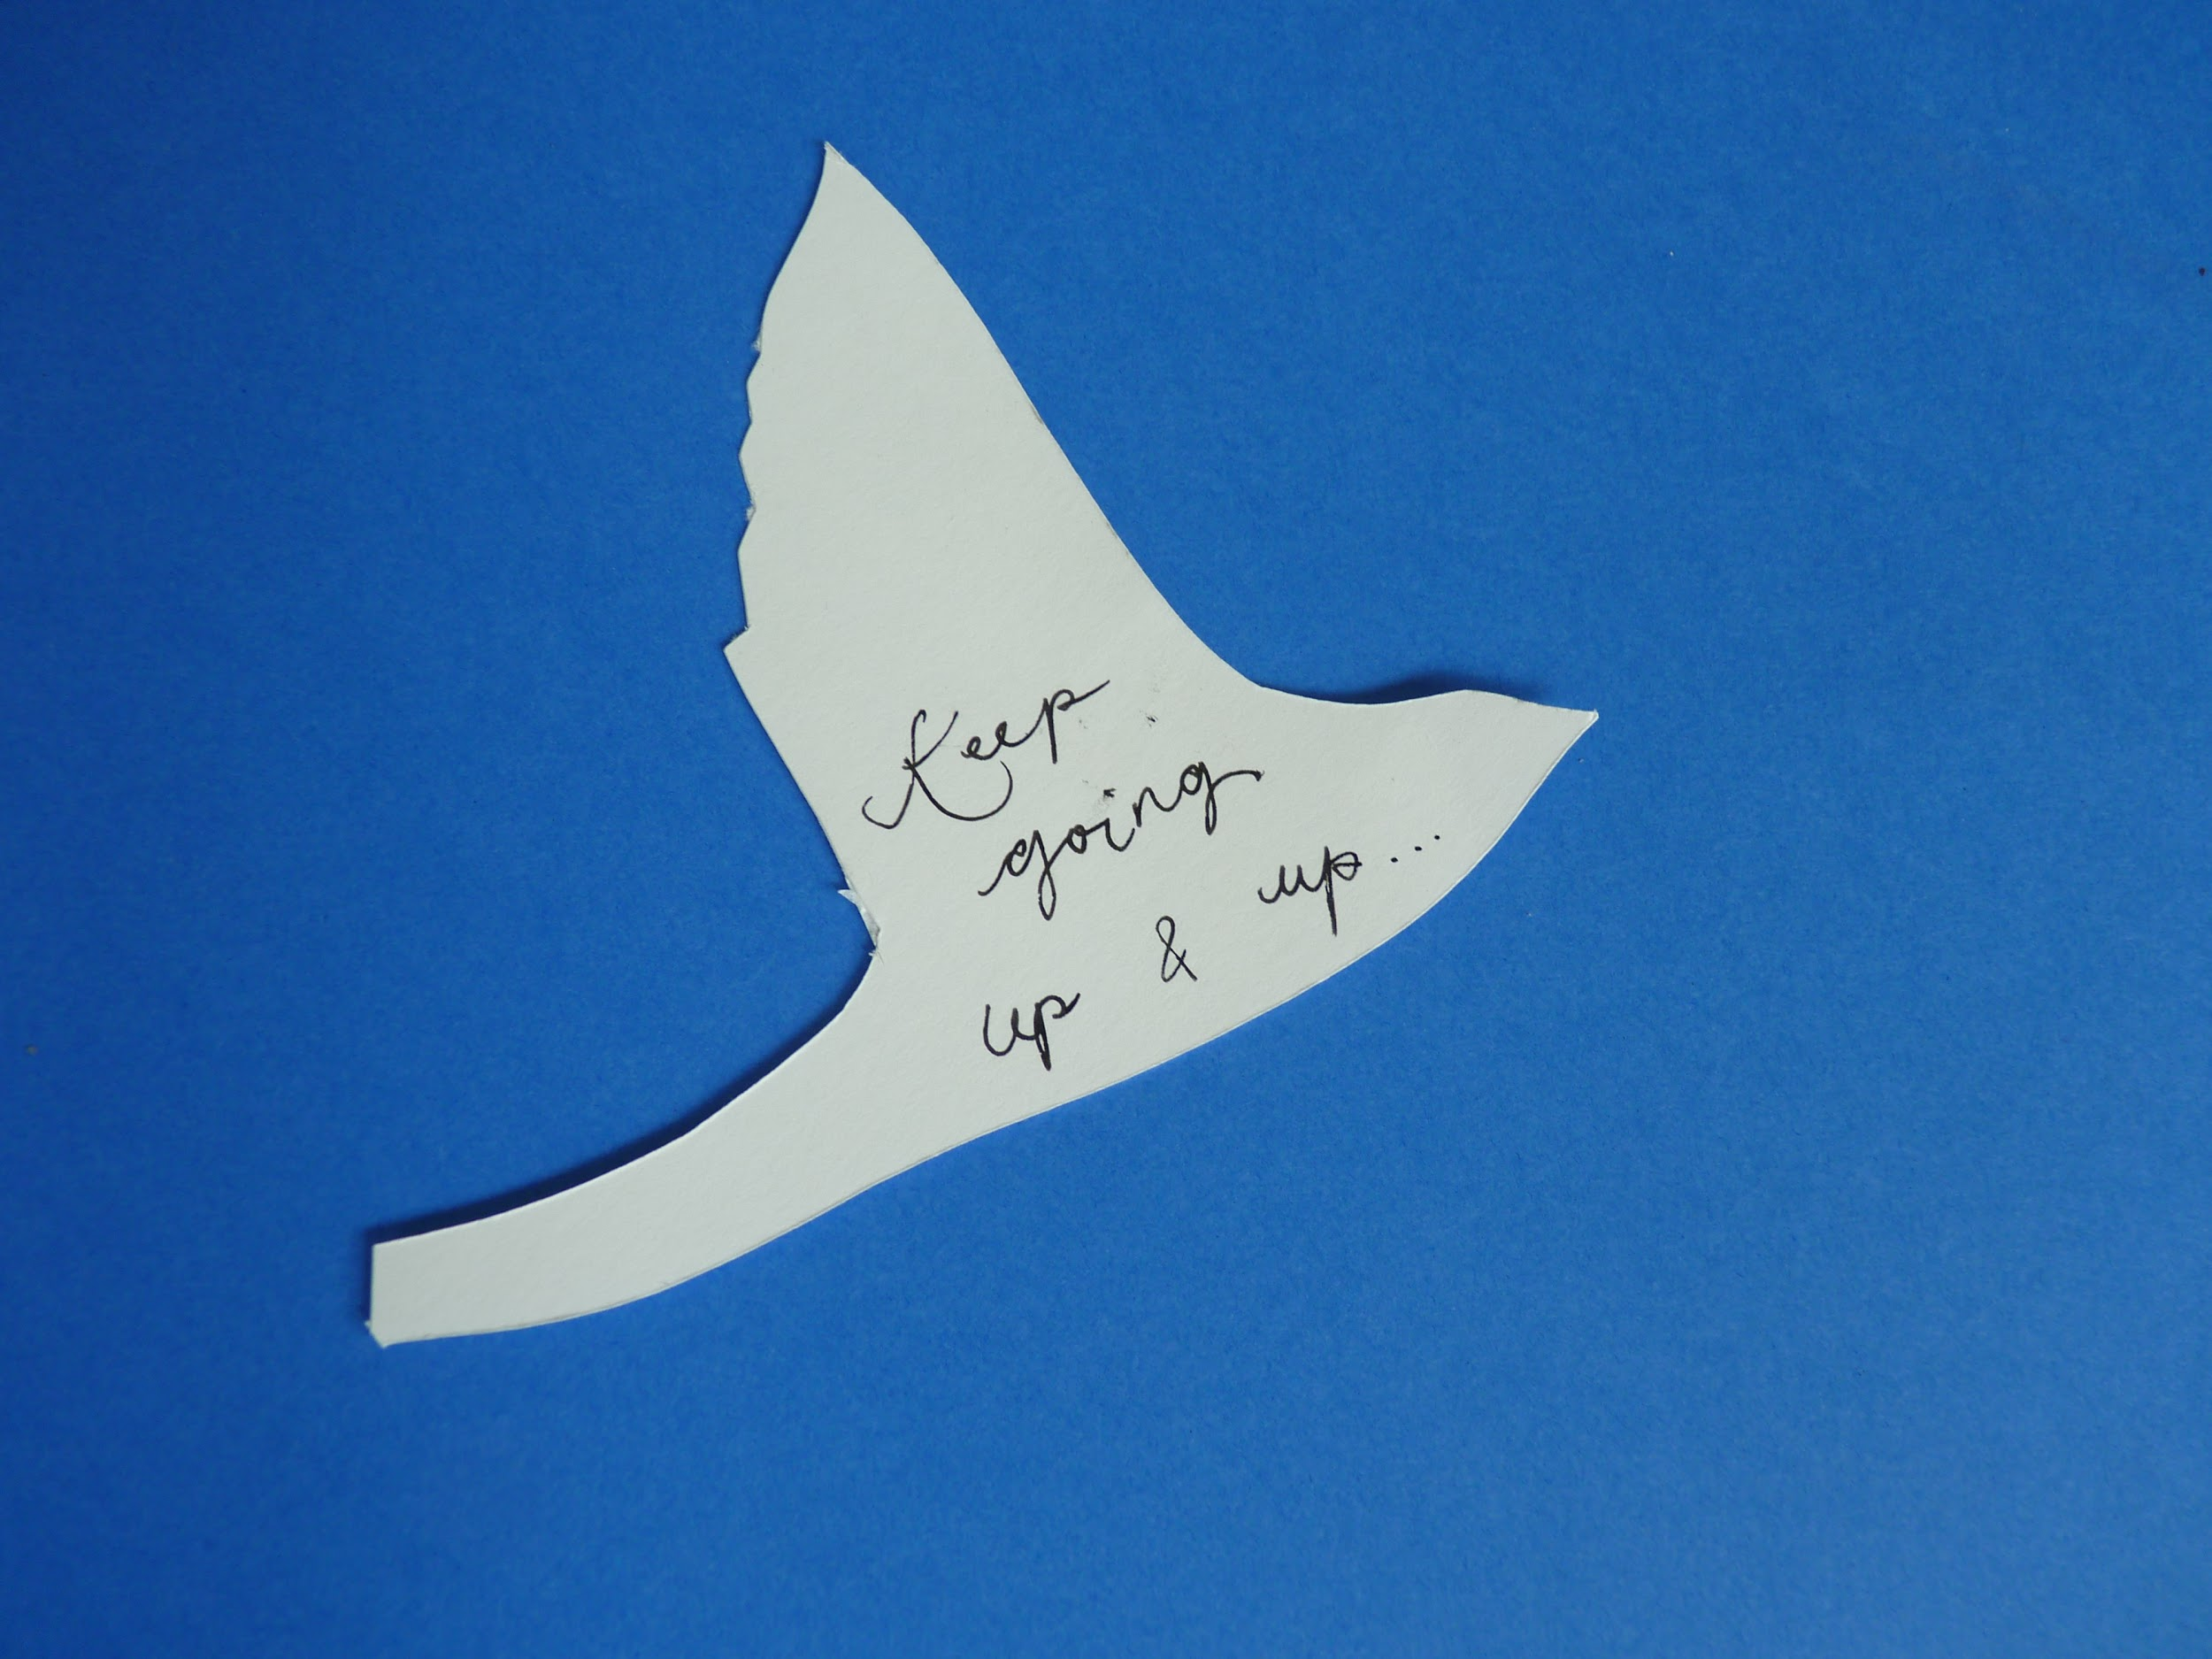 Keep
going
up & up...